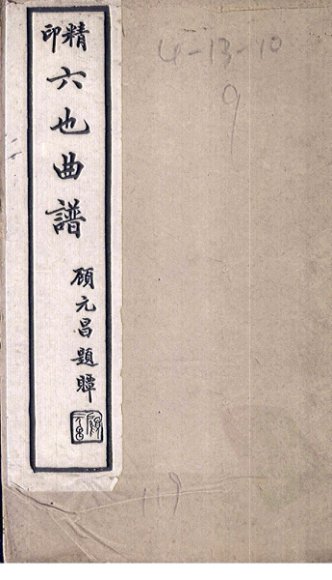 精印
六也曲譜
顧元昌題贉
4-13-10
9
119